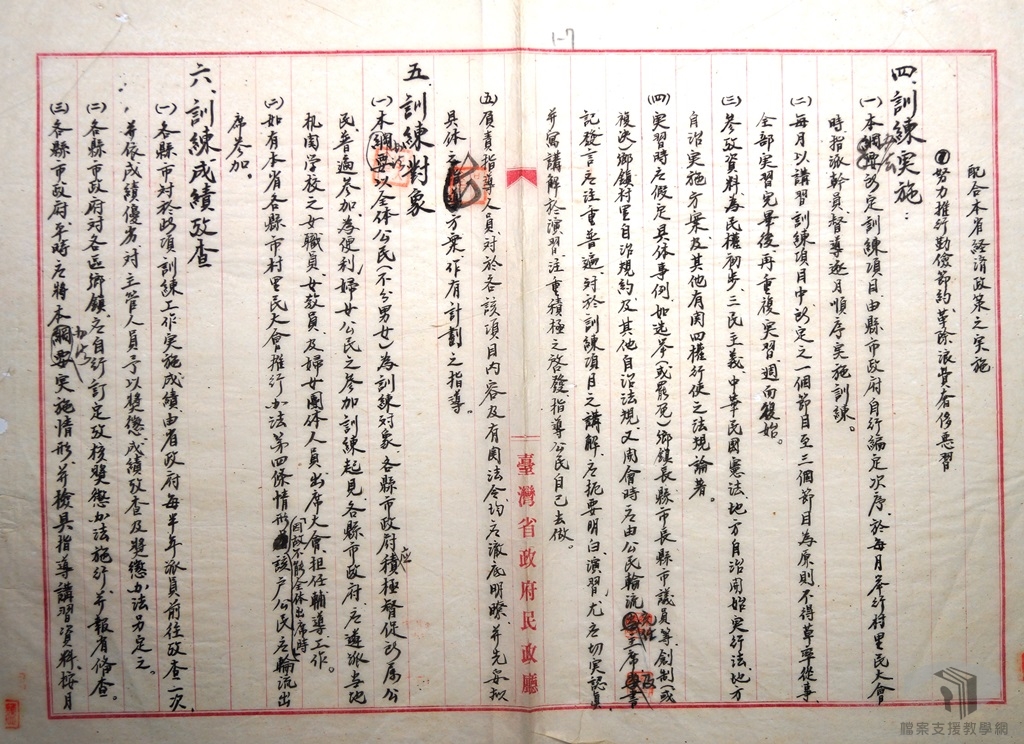 1-7
配合本省經濟政策之實施
努力推行勤儉節約、革除浪費奢侈惡習
四、訓練實施：
(一)本辦法所定訓練項目由縣市政府自行編定次序、於每月舉行村里民大會
時指派幹員督導逐月順序實施訓練。
(二)每月以講習訓練項目中所定之一個節目至三個節目為原則不得草率從事
全部實習完畢後、再重複實習週而復始。
(三)參政資料為民權初步、三民主義、中華民國憲法、地方自治開始實行法、地方
自治實施方案及其他有関四權行使之法規論著。
(四)實習時應假定具体事例、如選舉(或罷免)鄉鎮長縣市長縣市議員等、創制(或
複決)鄉鎮村里自治規約及其他自治法規、又開會時應由公民輪流充任主席
記發言應注重普遍、對於訓練項目之講解、應扼要明白、演習尤應切實認真
並寓講解於演習、注重積極之啓發、指導公民自己去做。
(五)負責指導人員對於各該項目內容及有関法令均應澈底明瞭、并先妥擬
具体之方案、作有計劃之指導。
五、訓練對象
(一)本辦法以全体公民(不分男女)為訓練對象、各縣市政府應積極督促所属公
民普遍參加、為便利婦女公民之參加訓練起見、各縣市政府應遴派當地
机関學校之女職員、女教員及婦女團体人員出席大會担任輔導工作。
(二)如有本省各縣市村里民大會推行办法第四條情形因故不能全体出席時該户公民應輪流出
席參加。
六、訓練成績攷查
(一)各縣市對於此項訓練工作實施成績由省政府每半年派員前往攷查一次
并依成績優劣對主管人員予以獎懲成績攷查及獎懲办法另定之
(二)各縣市政府對各區鄉鎮應自行訂定攷核獎懲办法施行、并報省備查。
(三)各縣市政府平時應將本办法實施情形并檢具指導講習資料、按月
臺灣省政府民政廳
檔案支援教學網